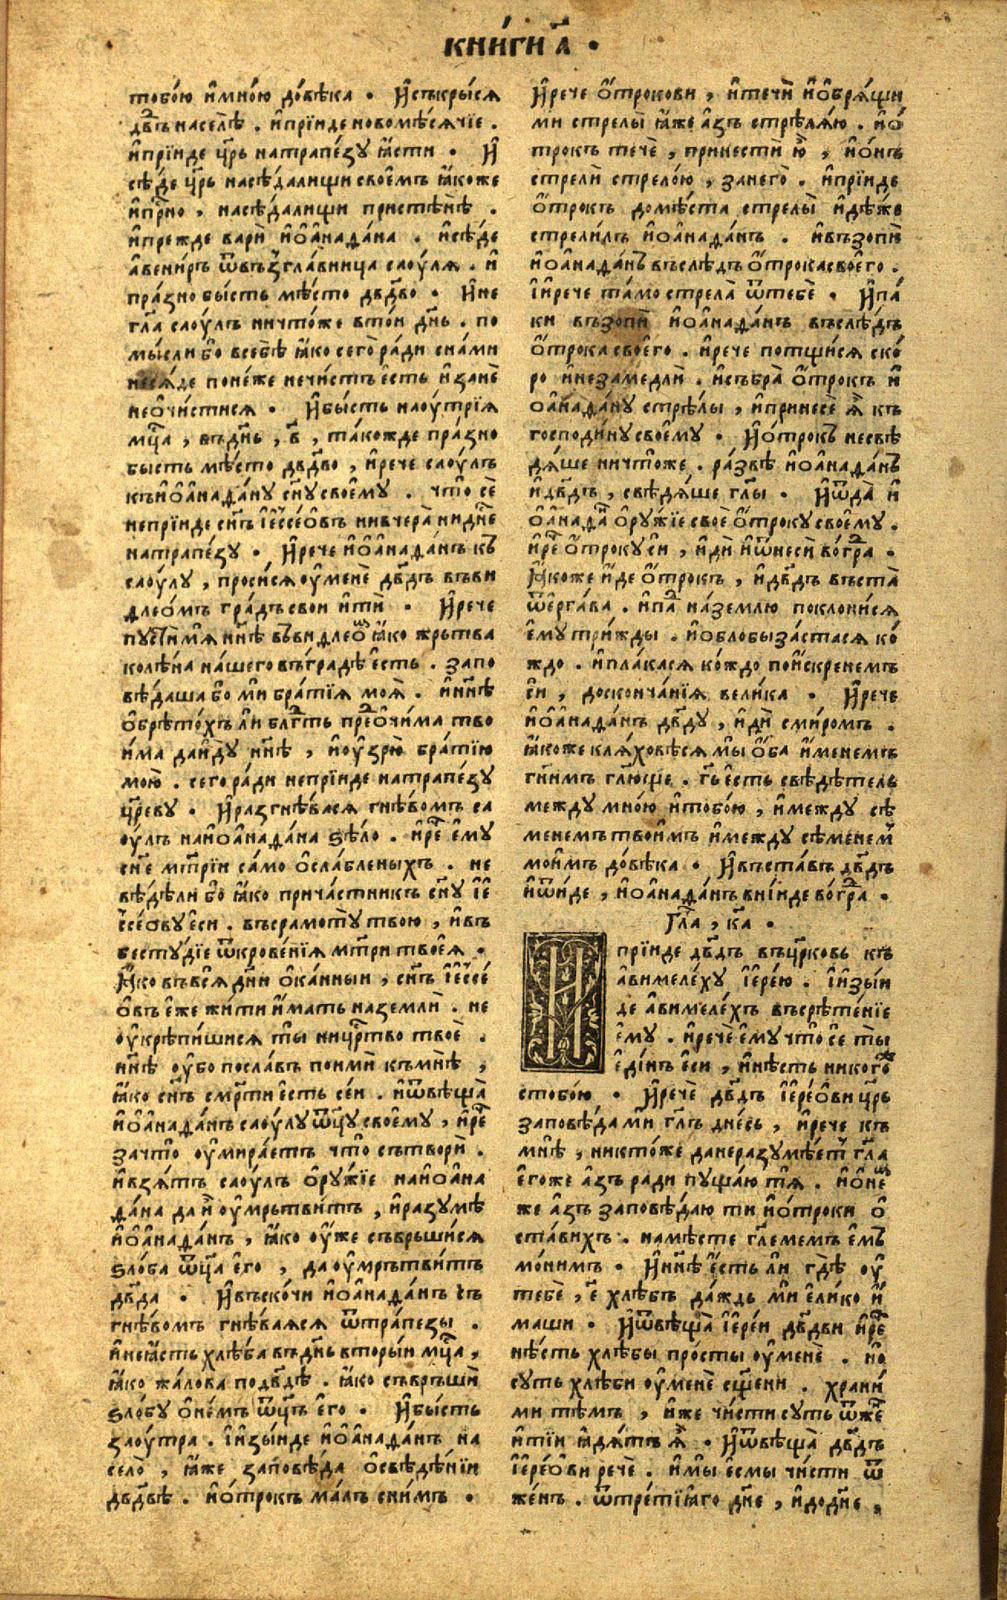 кни́ги а҃ ·
тобо́ю и҆мно́ю до́вѣка · И҆съкры́сѧ
дв҃дъ населѣ̀ . и҆прїи́де новомѣ́сѧчїе .
и҆прїи́де цр҃ь натрапе́зу ꙗ҆сти · И҆
сѣ́де цр҃ь насѣда́лищи свое҆мъ ꙗ҆коже
и҆при́сно , насѣда́лищи пристѣ́нѣ .
и҆пре́жде варѝ и҆ѻ҆анаѳа́на . и҆сѣ́де
а҆вени́ръ ѿвъзгла́вница саоу́лѧ . и҆
пра́зно бы́сть мѣ́сто дв҃дво · И҆не
гл҃а саоу́лъ ничто́же вто́и дн҃ь . по
мы́сли бо всебѣ̀ ꙗ҆ко сего̀ ра́ди сна́ми
несѧ́де поне́же нечи́стъ е҆сть и҆занѐ
неѻ҆чи́стисѧ · И҆бы́сть наоу́трїѧ
мц҃а , въдн҃ь , в҃ , та́кожде пра́зно
бы́сть мѣ́сто дв҃дво , и҆рече саоу́лъ
къи҆ѻ҆анаѳа́ну сн҃у свое҆му . что̀ сѐ
непрїи́де сн҃ъ і҆ессе́ѻвъ нивчера̀ нидн҃е
натрапе́зу · И҆рече и҆ѻ҆анаѳа́нъ къ
саоу́лу , проси́сѧ оу҆менѐ дв҃дъ въви
длео́мъ гра́дъ свои и҆тѝ · И҆рече
пустѝ мѧ нн҃ѣ въвидлеѻ҆ ꙗ҆ко жрътва
колѣ́на на́шего въгра́дѣ е҆сть . запо
вѣ́даша бо ми бра́тїѧ моѧ̀ . и҆нн҃ѣ
ѻ҆брѣто́хъ ли блг҃ть прⷣеѻ҆чи́ма тво
и҆ма да и҆ду нн҃ѣ , и҆оу҆зрю̀ бра́тїю
мою̀ . сего ра́ди непрїи́де натрапе́зу
цр҃еву · И҆разгнѣ́васѧ гнѣ́вомъ са
оу́лъ наи҆ѻ҆анаѳа́на ѕѣ́ло . и҆рⷱе е҆му
сн҃е мт҃рїи са́мо ѻ҆сла́бленыхъ . не
вѣ́дѣли бо ꙗ҆ко прича́стникъ сн҃у і҆е
ссе́ѻву е҆си . въсрамоту̀ твою , и҆въ
бесту́дїе ѿкрове́нїѧ мт҃ри твоеѧ̀ .
Ꙗ҆ко въвсѧ̀ дн҃и ѻ҆ка́нныи , сн҃ъ і҆ессе́
ѻ҆въ е҆же жи́ти и҆мать наземлѝ . не
оу҆крѣпи́шисѧ ты̀ ницр҃тво твоѐ .
нн҃ѣ оу҆бо посла́въ поимѝ къмнѣ̀ ,
ꙗ҆ко сн҃ъ смр҃ти е҆сть се́и . и҆ѿвѣща̀
и҆ѻ҆анаѳа́нъ саоу́лу ѿц҃у свое҆му , и҆рⷱе
зачто̀ оу҆мира́етъ что̀ сътворѝ .
и҆взѧ́тъ саоу́лъ ѻ҆ру́жїе наи҆ѻ҆ана
ѳа́на да и҆ оу҆мрътви́тъ , и҆разумѣ̀
и҆ѻ҆анаѳа́нъ , ꙗ҆ко оу҆же съврьши́сѧ
ѕло́ба ѿц҃а е҆го , да оу҆мрътви́тъ
дв҃да · И҆въскочи и҆ѻ҆анаѳа́нъ съ
гнѣ́вомъ гнѣ́ваѧсѧ ѿтра́пезы .
и҆неꙗ҆сть хлѣ́ба въдн҃ь вто́рыи мц҃а ,
ꙗ҆ко жа́лова подв҃дѣ . ꙗ҆ко съвръшѝ
ѕло́бу ѻ҆не́мъ ѿц҃ъ е҆го · И҆бы́сть
заоу́тра . і҆изы́иде и҆ѻ҆анаѳа́нъ на
село̀ , ꙗ҆же заповѣ́да ѻ҆свѣдѣ́нїи
дв҃двѣ . и҆ѻ҆трокъ ма́лъ сни́мъ ·
И҆рече ѻ҆трокови , и҆течѝ и҆ѻ҆брѧ́щи
ми стрелы̀ ꙗ҆же а҆зъ стрѣлѧ́ю . и҆ѻ҆
трокъ течѐ , принестѝ ю҆ , и҆ѻ҆нъ
стрели стрело́ю , занего̀ . и҆прїи́де
ѻ҆трокъ домѣ́ста стрелы̀ и҆дѣ́же
стрели́лъ и҆ѻ҆анаѳа́нъ . и҆възопѝ
и҆ѻ҆анаѳа́нъ въслѣ́дъ ѻ҆трока своего .
І҆и҆рече та́мо стрела̀ ѿтебѐ · И҆па́
ки възопѝ и҆ѻ҆анаѳа́нъ въслѣ́дъ
ѻ҆трока своего . и҆рече потщи́сѧ ско́
ро и҆незаме́длѝ . и҆събра̀ ѻ҆трокъ и҆
ѻ҆анаѳа́ну стрѣ́лы , и҆принесѐ ѧ҆ къ
господи́ну свое҆му · И҆ѻ҆трокъ несвѣ
дѧ́ше ничто́же . ра́звѣ и҆ѻ҆анаѳа́нъ
и҆дв҃дъ , свѣдѧ́ше гл҃ы · И҆ѿда̀ и҆
ѻ҆анаѳⷩа ѻ҆ру́жїе своѐ ѻ҆троку свое҆му .
и҆рⷱе ѻ҆троку си , и҆дѝ и҆ѿнесѝ во́граⷣ ·
Ꙗ҆коже и҆де ѻ҆трокъ , и҆дв҃дъ въста̀
ѿергава . и҆паⷣ на́землю поклони́сѧ
е҆му три́жды . и҆облобыза́стасѧ ко́
ждо . и҆пла́касѧ ко́ждо пои҆скренемъ
си , досконча́нїѧ вели́ка · И҆рече
и҆ѻ҆анаѳа́нъ дв҃ду , и҆дѝ сми́ромъ .
ꙗ҆коже клѧ́ховѣсѧ мы̀ ѻ҆ба и҆менемъ
гн҃имъ гл҃юще . гь҃ е҆сть свѣдѣтель
между мно́ю и҆тобо́ю , и҆между сѣ́
менемъ твои́мъ и҆между сѣ́менем
мои́мъ до́вѣка · И҆въста́въ дв҃дъ
и҆ѿи́де , и҆ѻ҆анаѳа́нъ вни́иде во́граⷣ ·
Гл҃а , ка҃ ·
И҆прїи́де дв҃дъ въцр҃ковь къ
а҆вимеле́ху і҆ере́ю . і҆изы́и
де а҆вимеле́хъ въсрѣ́тенїе
е҆му . и҆речѐ е҆му что̀ се ты̀
е҆ди́нъ е҆си , и҆нѣ́сть никого̀же
стобо́ю · И҆речѐ дв҃дъ і҆ере́ѻви цр҃ь
заповѣ́да ми гл҃ъ дне́сь , и҆рече къ
мнѣ̀ , никто́же данеразумѣ́ет гл҃а
е҆гоже а҆зъ ра́ди пуща́ю тѧ̀ . и҆ѻ҆неⷨ
же а҆зъ заповѣ́даю ти и҆ѻ́троки ѻ҆
ста́вихъ . намѣ́сте гл҃емемъ е҆мъ
мо́нимъ · И҆нн҃ѣ е҆сть ли гдѣ̀ оу҆
тебѐ , є҃ хлѣ́бъ да́ждь ми е҆ли́ко и҆
маши · И҆ѿвѣща̀ і҆ере́и дв҃дви и҆рⷱе
нѣ́сть хлѣ́бы про́сты оу҆менѐ . но
су́ть хлѣ́би оу҆менѐ сщ҃ени . храни́
ми тѣ́мъ , и҆же чи́сти су́ть ѿже
и҆тїи ꙗ҆дѧ́тъ ѧ҆ · И҆ѿвѣща̀ дв҃дъ
і҆ере́ѻви речѐ . и҆мы̀ е҆смы чи́сти ѿ
же́нъ . ѿтре́тїꙗго дн҃е , и҆додн҃е ,